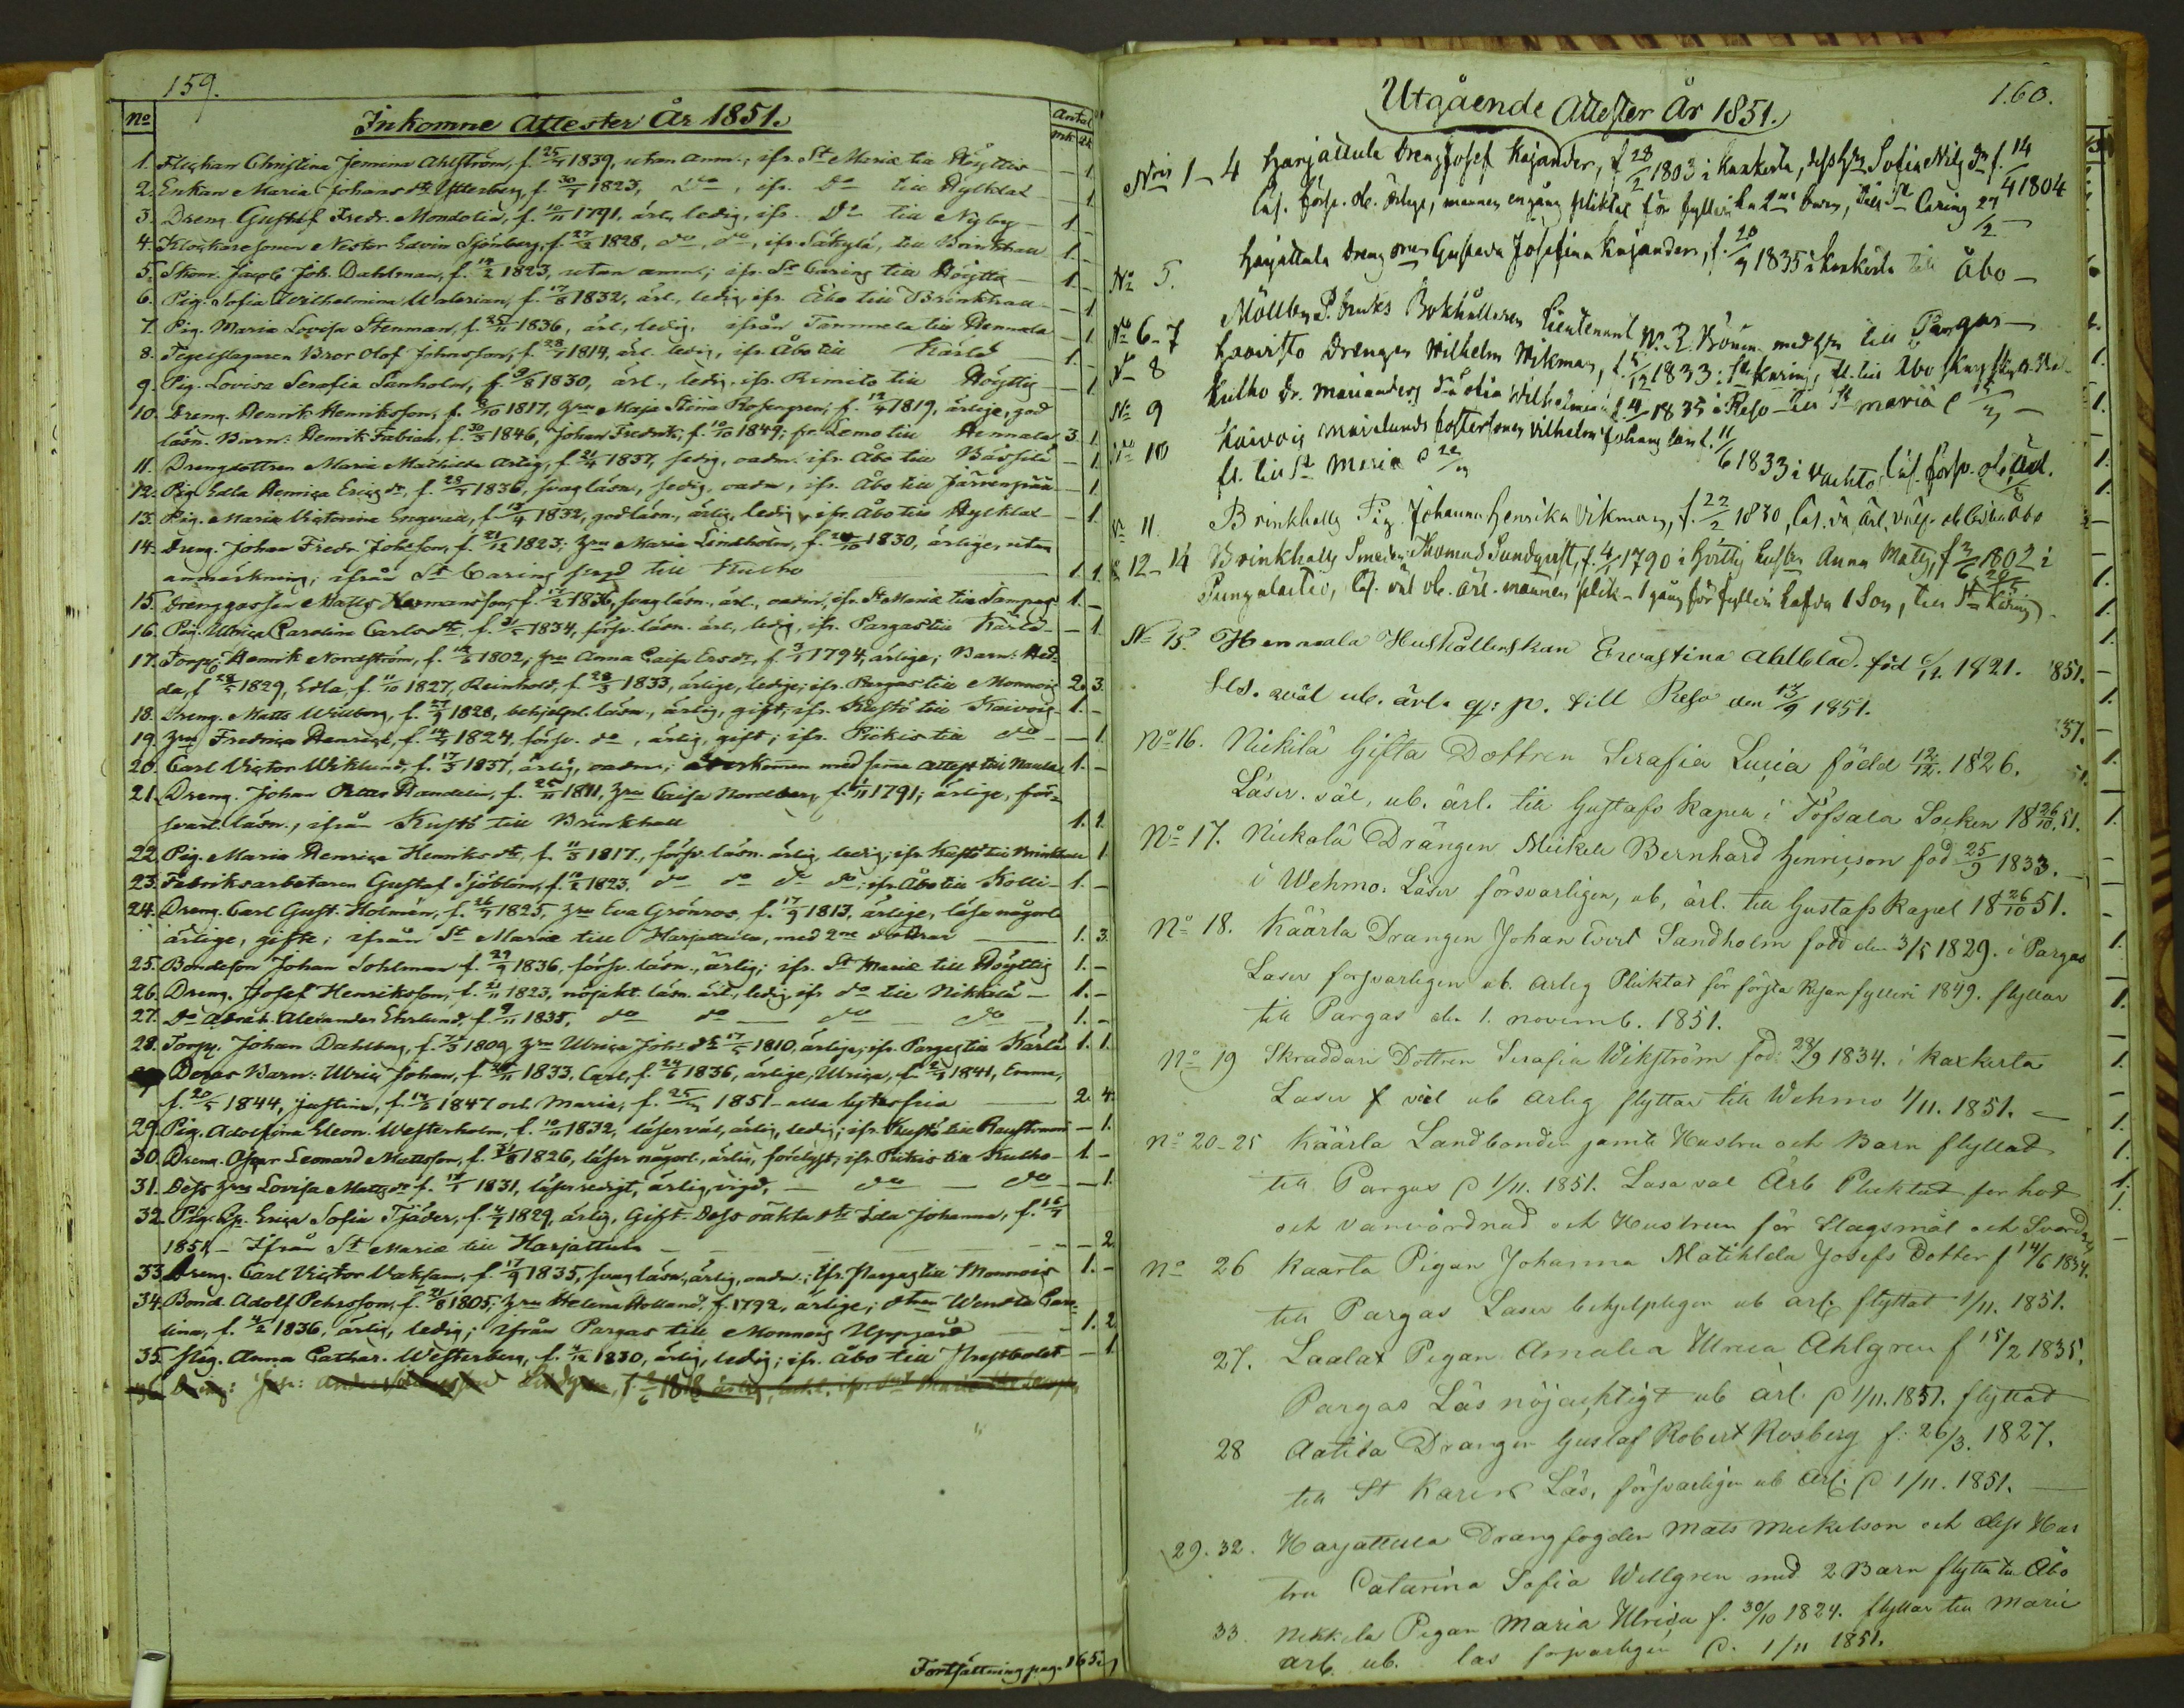 159.
No
Inkomne Attester År 1851.
Antal
mk qk
1. Flickan Christina Jemina Ahlström, f. 25/7 1839, utan anm., ifr. St Mariæ till Höyttis — 1.
2. Enkan Maria Johans dr Ytterberg, f. 30/7 1823, do, ifr. do till Kylklax — 1
3. Dreng Gustaf Fredr. Mondolin, f. 10/11 1791, ärl. ledig, ifr. do till Nyby 1 —
4. Klockaresonen Nestor Edvin Sjönberg, f. 27/2 1828, do, do, ifr. Säkylä, till Brinkhall 1. —
5. Skom. Jacob Joh. Dahlman, f. 14/2 1823, utan anm.; ifr. St Carins till Höyttis 1. —
6. Pig. Sofia Wilhelmina Walerian, f. 17/8 1832, ärl., ledig, ifr. Åbo till Brinkhall — 1.
7. Pig. Maria Lovisa Stenman, f. 25/11 1836, ärl., ledig, ifrån Tammela till Hennala — 1
8. Tegelslagaren Bror Olof Johnsson, f. 28/7 1814, ärl. ledig, ifr. Åbo till Kärlä 1. —
9. Pig. Lovisa Serafia Sanholm, f. 9/8 1830, ärl., ledig, ifr. Rimito till Höyttis — 1.
10. Dreng. Henrik Henriksson, f. 8/10 1817, Hru Maja Stina Rosengren, f. 12/4 1819, ärlige, god
läsn. Barn: Henrik Fabian, f. 30/5 1846, Johan Fredrik, f. 10/10 1849; fr. Lemo till Hennala 3. 1.
11. Drengdottren Maria Mathilda Arlig, f. 21/4 1837, sedig, oadm. ifr. Åbo till — 1.
12. Pig. Edla Henrica Erics dr, f. 28/5 1836, svag läsn., sedig, oadm, ifr. Åbo till Järvenpää — 1
13. Pig. Maria Victorina Engvall, f. 13/4 1832, god läsn., ärlig, ledig, ifr. Åbo till Kylklax — 1.
14. Dreng. Johan Fredr. Johlsson, f. 21/12 1823; Hru Maria Lindholm, f. 24/10 1830, ärlige, utan
anmärkning; ifrån St Carins till Kulho 1. 1.
15. Drenggossen Matts Hermansson, f. 17/2 1836, svag läsn., ärl., oadm., ifr. St Mariæ till Sampas 1. —
16. Pig. Ulrica Carolina Carlsdr, f. 1834, försv. läsn. ärl., ledig, ifr. Pargas till Kärlä — 1.
17. Torp. Henrik Nordström, f. 14/5 1802; Hru Anna Caisa Ersdr, f. 3/1 1794, ärlige; Barn: Hed=
da, f 28/5 1829, Edla, f. 11/10 1827, Reinhold, f. 28/3 1833, ärlige, ledige; ifr. Pargas till Monnois 2. 3.
18. Dreng. Matts Willberg, f. 27/9 1828, behjelpl. läsn., ärlig, gift; ifr. Kustö till Kaivois 1. —
19. Hru Fredrica Henricsd, f. 14/5 1824, försv. do, ärlig, gift; ifr. Piikis till do — 1.
20. Carl Victor Wiklund, f. 17/3 1837, ärlig, oadm.; återkommen med sama attest till Naulax 1. —
21. Dreng. Johan Petter Dandelin, f. 25/11 1811, Hru Caisa Nordberg, f. 1/11 1791; ärlige, för=
svarl. läsn., ifrån Kustö till Brinkhall 1. 1.
22. Pig. Maria Henrica Henriksdr, f. 11/3 1817, försv. läsn. ärlig ledig; ifr. Kustö till Brinkhall 1.
23. Fabriksarbetaren Gustaf Sjöblom, f. 10/2 1823. do do do do; ifr. Åbo till Kolli 1. —
24. Dreng. Carl Gust. Holmén, f. 26/7 1825, Hru Eva Grönroos, f. 17/9 1813, ärlige, läsa någorl.
ärlige, gifte; ifrån St Mariæ till Harjattula, med 2ne döttrar 1. 3.
25. Bondeson Johan Sohlman f. 29/9 1836, försv. läsn., ärlig; ifr. St Mariæ till Höyttis 1. —
26. Dreng. Josef Henriksson, f. 21/11 1823, nöjakt. läsn. ärl., ledig, ifr do till Nikkilä — 1. —
27. do Abrah. Alexander Ekelund, f. 9/11 1835, do do — do — do 1. —
28. Torp. Johan Dahlberg, f. 7/3 1809, Hru Ulrica Johsdr 17/5 1810, ärlige; ifr. Pargas till Kärlä 1. 1.
Deras Barn: Ulric Johan, f. 1833, Carl, f. 24/6 1836, ärlige, Ulrica, f 2/3 1841, Emma,
f. 20/5 1844, Justina, f. 14/3 1847 och Maria, f. 25/3 1851 — alla lytesfria 2. 4.
29. Pig. Adolfina Eleon. Westerholm, f. 10/11 1832, läser väl, ärlig, ledig; ifr. Kustö till — 1.
30. Dreng. Oscar Leonard Mattsson, f. 21/8 1826, läser någorl., ärlig, förelyst; ifr. Piikis till Kulho 1. —
31. Dess Hru Lovisa Matts dr f. 1831, läser redigt, ärlig, vigd, — do — do — 1.
32. Pig. Erica Sofia Tjäder, f. 4/7 1829, ärlig, Gift. Dess oäkta dr Ida Johanna, f. 15/1
1851 — Ifrån St Mariæ till Harjattula — — — 2.
33. Dreng. Carl Victor Vaksam, f. 17/9 1835, svag läsn., ärlig, oadm.; ifr. Pargas till Monnois 1. —
34. Bond. Adolf Pehrsson, f. 21/8 1805; Hru Helena Holland, f. 1792, ärlige; dtren Wendla Caro=
lina, f. 4/2 1836, ärlig, ledig; ifrån Pargas till Monnois Uppgård 1. 2.
35. Pig. Anna Cathar. Westerberg, f. 1/12 1830, ärlig, ledig; ifr. Åbo till — 1
36. Dreng: Lindgren, f. 2/6 1818 ärlig
Fortsättning pag. 165.
160.
Utgående Attester År 1851.
Nris 1—4 Harjattula Dreng Josef Kajander, f 28/2 1803 i Kaxkerta, dess hru Sofia Nils dr f. 14/4 1804
läs. försv. ärlige, mannen en gång pliktat för fylleri ha 2ne barn, till St Carins 27/2
No 5. Harjattula Dreng Gustava Josefina Kajander, f. 20/9 1835 i Kaxkerta till Åbo —
No 6—7 Möllby P. Bruks Bokhållaren Lieutenant med Hru till Pargas —
N— 8 Haavisto Drengen Wilhelm Wikman, f. 5/12 1833 i St Karins, fl. till Åbo
No 9 Kulho Dr. Marianders Wilhelmina f. 4/ 1835 i Reso till St Mariæ
No 10 Kaivois Marelunds fostersonen Vilhelm Johans f. 11/6 1833 i Vachto, läs. försv. ärl.
fl. till St Mariæ
N 11 Brinkhalls Pig. Johanna Henrika Vikman, f. 22/2 1830, läs. Åbo
12—14 Brinkhalls Smeden Thomas Sundqvist, f. 4/ 1790 i Hvittis hust Anna Mats, f 2/6 1802 i
Pungalaitio, läs. väl ob. ärl. mannen plik. 1 gång för fylleri hafva 1 Son, till St Karins
N— 15. Hennala Hushållerskan Ervastina Ahlblad. född 1821.
läs. wäl ub. ärl. q: p. till Reso den 13/9 1851.
No 16. Nickilä Gifta Dottren Serafia Lucia född 12/12. 1826.
Läser. väl, ub. ärl. till Gustafs Kapell i Töfsala Socken 18 26/10 51.
No 17. Nickalä Drängen Mickel Bernhard Henricson föd 25/9 1833.
i Wehmo. Läser försvarligen, ub, ärl. till Gustafs Kapel 18 26/10 51.
No 18. Käärla Drangen Johan Evert Sandholm född den 3/5 1829. i Pargas
Laser forsvarligen ub. arlig Pliktat för första Resan fylleri 1849. flyttar
till Pargas de. 1. novemb. 1851.
No 19 Skraddari Dottren Serafia Wikström föd: 28/9 1834. i Kaxkerta
Laser väl ub arlig flyttar till Wehmo 1/11. 1851.
No 20—25 Käärla Landbonden jemte Hustru och Barn flyttad
till Pargas d 1/11. 1851. Lasa val Arb Pliktad for hod
och vanvördnad och Hustrun för Slagsmål och
No 26 Kaarta Pigan Johanna Matihlda Josefs Dotter f 14/6 1834.
till Pargas Laser behjelpligen ub arl. flyttat 1/11. 1851.
27. Laalax Pigan Amalia Ulrica Ahlgren f 15/2 1835.
Pargas Läs nöjachtigt ub ärl. d 1/11. 1851. flyttad
28 Aatila Drangen Gustaf Robert Rosberg f. 26/3. 1827.
till St Karins Läs, försvarligen ub ärl. d 1/11. 1851.
29. 32. Harjattula Drangfogden Mats Mickelson och dess Hus
tru Catarina Sofia Wellgren med 2 Barn flytta till Åbo
33. Nikkila Pigan Maria Ulrica f. 30/10 1824. flyttar till Marie
arb. ub. las forsvarligen d. 1/11 1851.